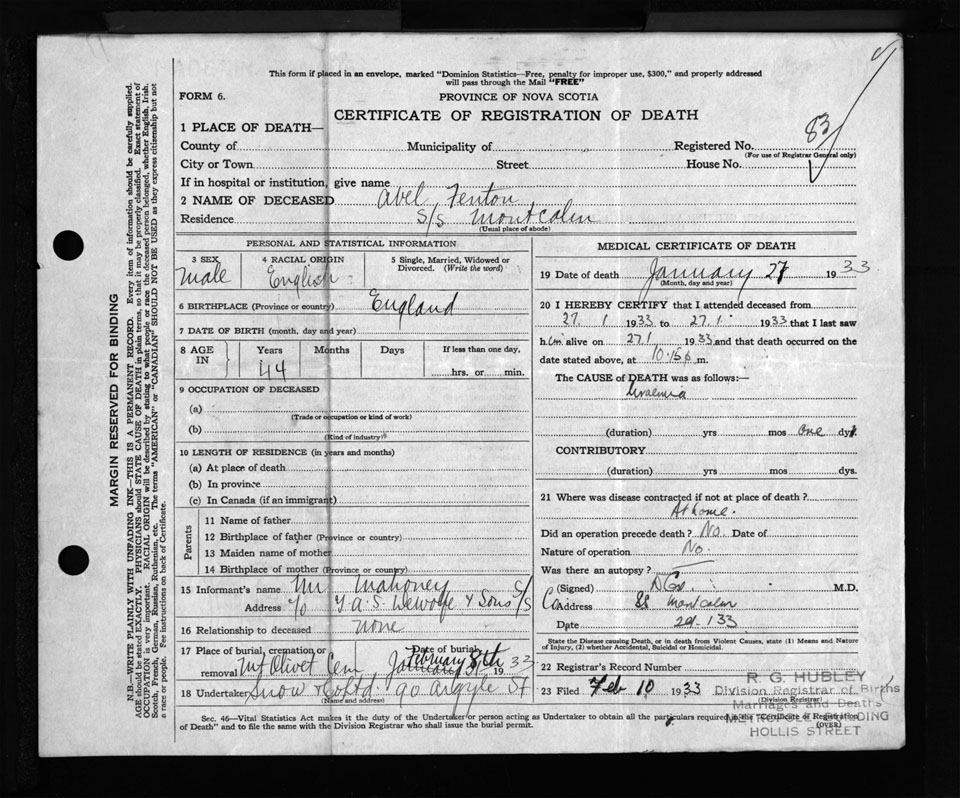 This form if placed in an envelope, marked "Dominion Statistics—Free, penalty for improper use, $300," and properly addressed
will pass through the Mail "FREE"
FORM 6.
PROVINCE OF NOVA SCOTIA
CERTIFICATE OF REGISTRATION OF DEATH
83
1 PLACE OF DEATH—
County of Municipality of Registered No.
(For use of Registrar General only)
City or Town Street House No.
If in hospital or institution, give name
2 NAME OF DECEASED Abel Fenton
Residence S/S Montcalm
(Usual place of abode)
PERSONAL AND STATISTICAL INFORMATION
3 SEX 4 RACIAL ORIGIN 5 Single, Married, Widowed or
Divorced. (Write the word)
Male English
6 BIRTHPLACE (Province or country) England
7 DATE OF BIRTH (month, day and year)
8 AGE IN Years Months Days If less than one day,
44 hrs. or min.
9 OCCUPATION OF DECEASED
(a)
(Trade or occupation or kind of work)
(b)
(Kind of industry)
10 LENGTH OF RESIDENCE (in years and months)
(a) At place of death
(b) In province
(c) In Canada (if an immigrant)
Parents
11 Name of father
12 Birthplace of father (Province or country)
13 Maiden name of mother
14 Birthplace of mother (Province or country)
15 Informant's name Mr. Mahoney
Address c/o T. A. S. Dewolfe & Sons
16 Relationship to deceased none
17 Place of burial, cremation or Date of burial
removal Mt Olivet Cem February 8th 1933
18 Undertaker Snow & Co Ltd. 90 Argyle St
(Name and address)
MEDICAL CERTIFICATE OF DEATH
19 Date of death January 27 1933
(Month, day and year)
20 I HEREBY CERTIFY that I attended deceased from
27. 1 1933 to 27.1. 1933 that I last saw
h im alive on 27.1 1933 and that death occurred on the
date stated above, at 10.15 m.
The CAUSE of DEATH was as follows:—
Uraemia
(duration) yrs mos one dys.
CONTRIBUTORY
(duration) yrs. mos. dys.
21 Where was disease contracted if not at place of death?
At home.
Did an operation precede death? No. Date of
Nature of operation No.
Was there an autopsy?
(Signed) M.D.
Address SS Montcalm
Date
State the Disease causing Death, or in death from Violent Causes, state (1) Means and Nature
of Injury, (2) whether Accidental, Suicidal or Homicidal.
22 Registrar's Record Number
23 Filed Feb 10 1933
(Division Registrar)
R. G. HUBLEY
Division Registrar of Births
Marriages and Deaths
METROPOLE BUILDING
HOLLIS STREET
Sec. 46—Vital Statistics Act makes it the duty of the Undertaker or person acting as Undertaker to obtain all the particulars required in the "Certificate of Registration
of Death" and to file the same with the Division Registrar who shall issue the burial permit. (OVER)
MARGIN RESERVED FOR BINDING
N.B.—WRITE PLAINLY WITH UNFADING INK—THIS IS A PERMANENT RECORD. Every item of information should be carefully supplied.
AGE should be stated EXACTLY. PHYSICIANS should STATE CAUSE OF DEATH in plain terms, so that it may be properly classified. Exact statement of
OCCUPATION is very important. RACIAL ORIGIN will be described by stating to what people or race the deceased person belonged, whether English, Irish,
Scotch, French, German, Russian, Ruthenian, etc. The terms "AMERICAN" or "CANADIAN" SHOULD NOT BE USED as they express citizenship but not
a race or people. Fee instructions on back of Certificate.